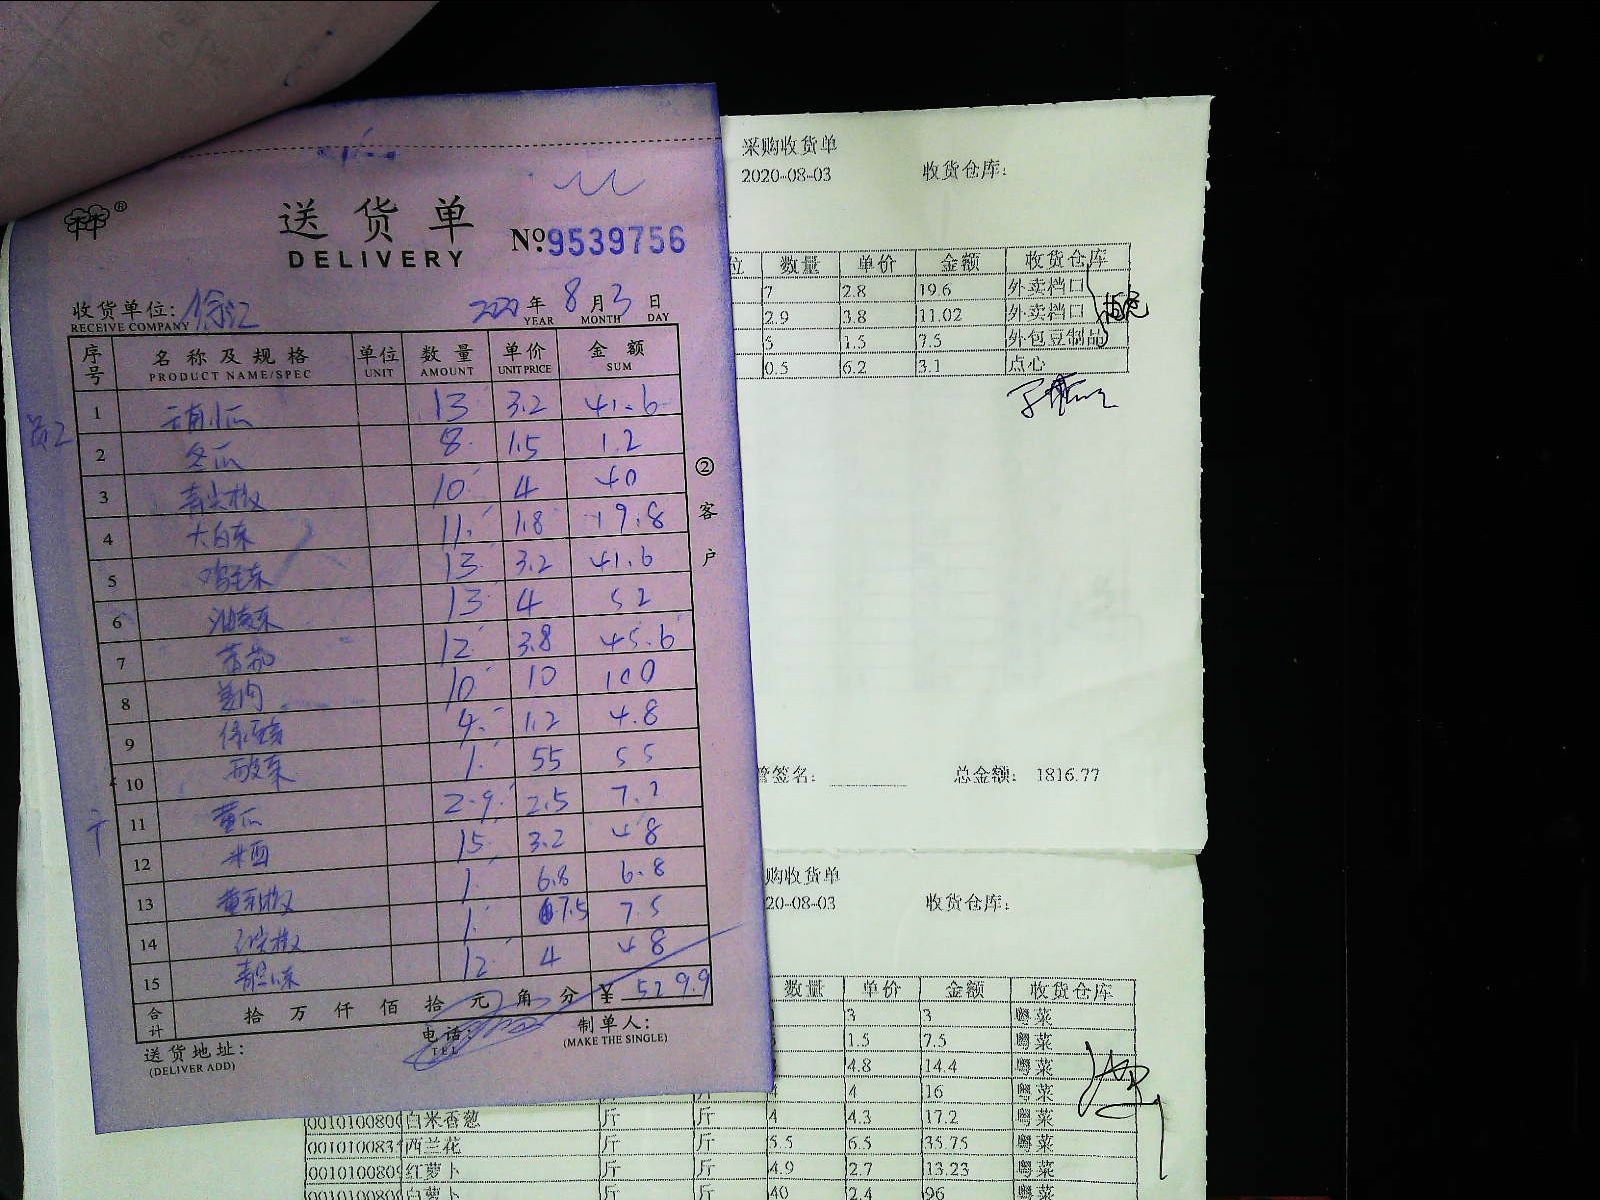 送货单
DELIVERY
№9539756
收货单位: 徐汇
RECEIVE COMPANY
2020年8月3日
YEAR MONTH DAY
序号 名称及规格 单位 数量 单价 金额
PRODUCT NAME/SPEC UNIT AMOUNT UNIT PRICE SUM
员工
1 13 3.2 41.6
2 冬瓜 8 1.5 1.2
3 青尖椒 10 4 40
4 大白菜 11 1.8 19.8
5 鸡毛菜 13 3.2 41.6
6 油麦菜 13 4 52
7 12 3.8 45.6
8 姜肉 10 10 100
9 绿豆芽 4 1.2 4.8
10 1 55 55
11 黄瓜 2.9 2.5 7.2
12 15 3.2 48
13 黄彩椒 1 6.8 6.8
14 红尖椒 1 7.5 7.5
15 12 4 48
合计 拾万仟佰拾元角分 ¥ 529.9
② 客户
送货地址:
(DELIVER ADD)
电话:
TEL
制单人:
(MAKE THE SINGLE)
采购收货单
2020-08-03 收货仓库:
位 数量 单价 金额 收货仓库
7 2.8 19.6 外卖档口
2.9 3.8 11.02 外卖档口
5 1.5 7.5 外包豆制品
0.5 6.2 3.1 点心
管签名: 总金额: 1816.77
购收货单
20-08-03 收货仓库:
数量 单价 金额 收货仓库
3 3 粤菜
1.5 7.5 粤菜
4.8 14.4 粤菜
4 4 16 粤菜
001010080 白米香葱 斤 斤 4 4.3 17.2 粤菜
001010083 西兰花 斤 斤 5.5 6.5 35.75 粤菜
001010080 红萝卜 斤 斤 4.9 2.7 13.23 粤菜
001010080 白萝卜 斤 斤 40 2.4 96 粤菜